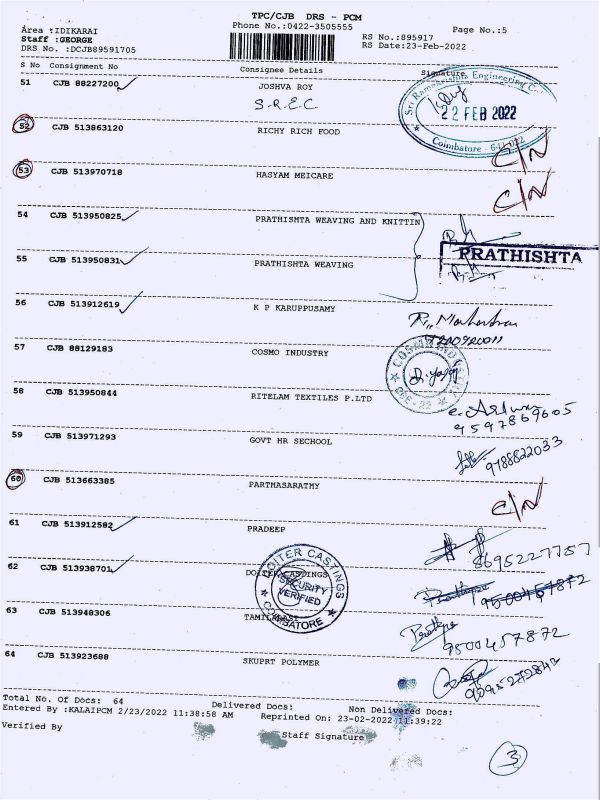 TPC/CJB DRS - PCM
Area :IDIKARAI Phone No.:0422-3505555 RS No.:895917 Page No.:5
Staff :GEORGE RS Date:23-Feb-2022
DRS No. :DCJB89591705
S No Consignment No Consignee Details Signature
51 CJB 88227200 JOSHVA ROY
S.R.E.C
Sri Ramakrishna Engineering
22 FEB 2022
Coimbatore - 641 022
52 CJB 513863120 RICHY RICH FOOD
C/N
53 CJB 513970718 HASYAM MEICARE
C/N
54 CJB 513950825 PRATHISHTA WEAVING AND KNITTIN
PRATHISHTA
55 CJB 513950831 PRATHISHTA WEAVING
56 CJB 513912619 K P KARUPPUSAMY
57 CJB 88129183 COSMO INDUSTRY
58 CJB 513950844 RITELAM TEXTILES P.LTD
9597869605
59 CJB 513971293 GOVT HR SECHOOL
9788822033
60 CJB 513663385 PARTHASARATHY
C/N
61 CJB 513912582 PRADEEP
8695227757
62 CJB 513938701 DOITER CASTINGS
DOITER CASTINGS
SECURITY
VERIFIED
COIMBATORE
63 CJB 513948306
9500457872
64 CJB 513923688 SKUPRT POLYMER
Total No. Of Docs: 64 Delivered Docs: Non Delivered Docs:
Entered By :KALAIPCM 2/23/2022 11:38:58 AM Reprinted On: 23-02-2022 11:39:22
Verified By Staff Signature
3